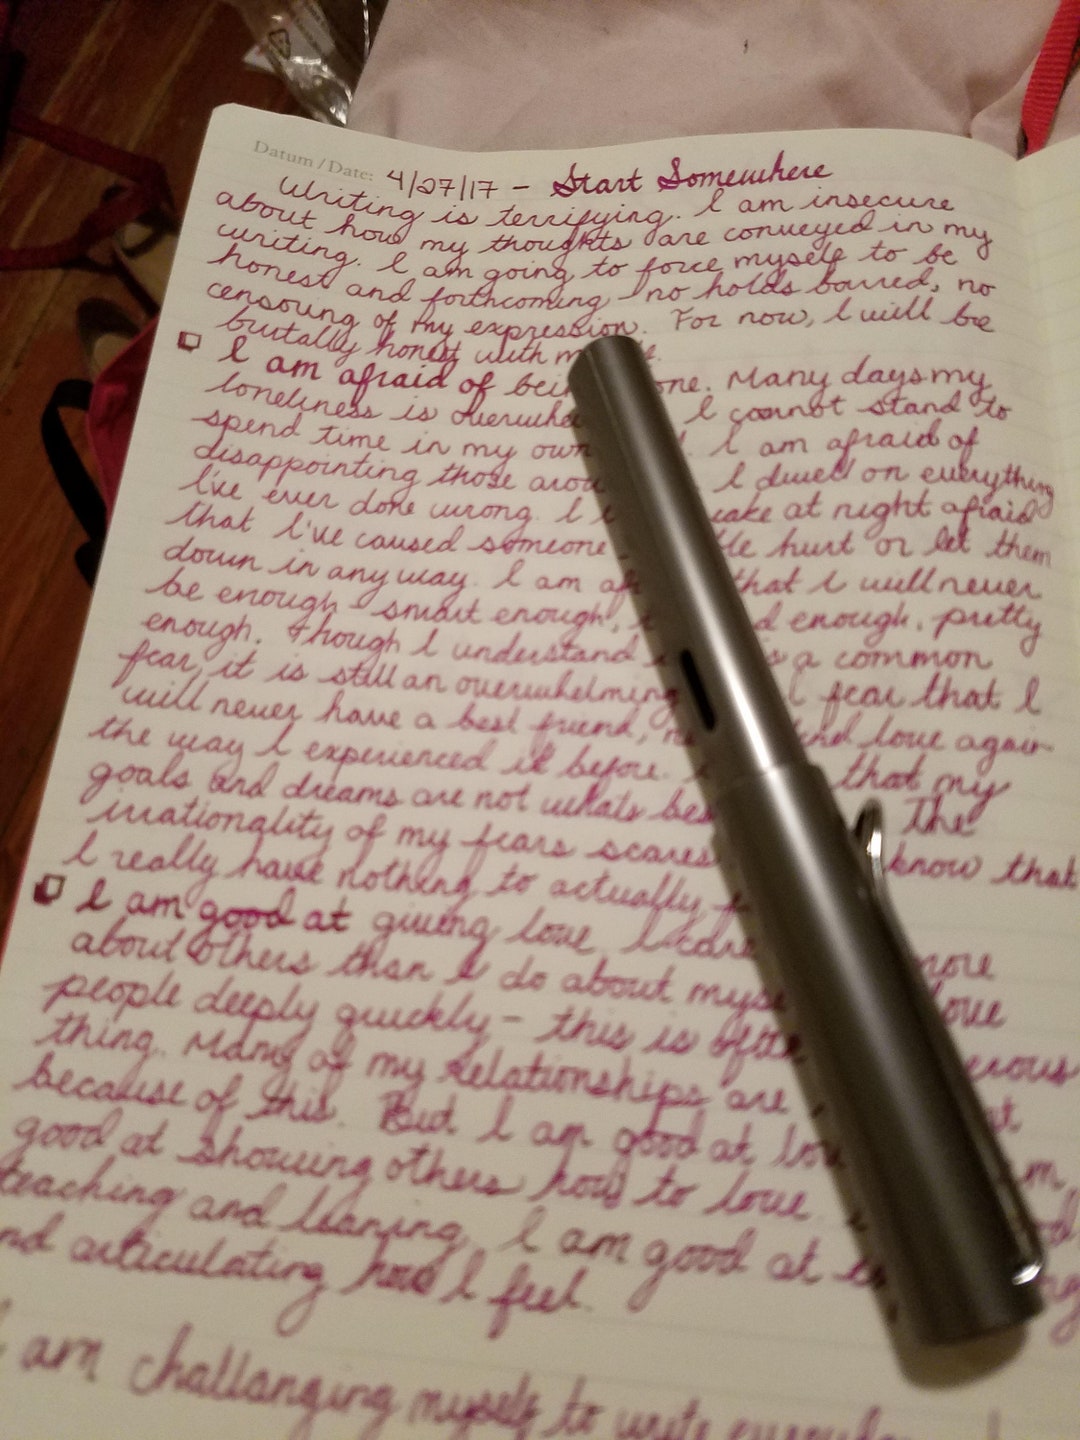 Datum / Date: 4/27/17 - Start Somewhere
Writing is terrifying. I am insecure
about how my thoughts are conveyed in my
writing. I am going to force myself to be
honest and forthcoming - no holds barred, no
censoring of my expression. For now, I will be
brutally honest with
I am afraid of one. Many days my
loneliness is I cannot stand to
spend time in my own I am afraid of
disappointing those I dwell on everything
I've ever done wrong. I at night afraid
that I've caused someone hurt or let them
down in any way. I am that I will never
be enough - smart enough, enough, pretty
enough. Though I understand a common
fear, it is still an overwhelming I fear that I
will never have a best friend, love again
the way I experienced it before. that my
goals and dreams are not whats The
irrationality of my fears scares know that
I really have nothing to actually
I am good at giving love. I care more
about others than I do about love
people deeply quickly - this is
thing. Many of my relationships are
because of this. But I am good at
good at showing others how to love.
teaching and leaning. I am good at
articulating how I feel.
am challanging myself to write everyday